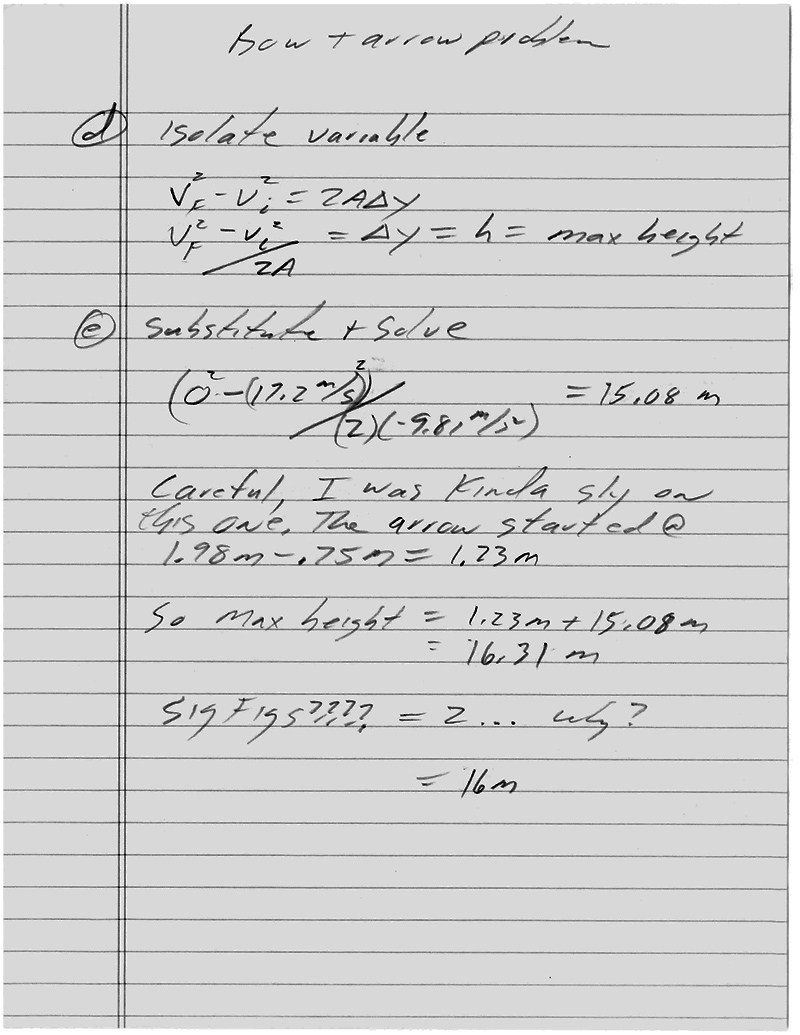 Bow + arrow problem
d Isolate variable
V_F² - V_i² = 2AΔy
V_F² - V_i² / 2A = Δy = h = max height
e Substitute + Solve
(0² - (17.2 m/s)²) / (2)(-9.81 m/s²) = 15.08 m
Careful, I was Kinda sly on
this one. The arrow started @
1.98m - .75m = 1.23m
So max height = 1.23m + 15.08m
= 16.31 m
Sig Figs???? = 2 ... why?
= 16m